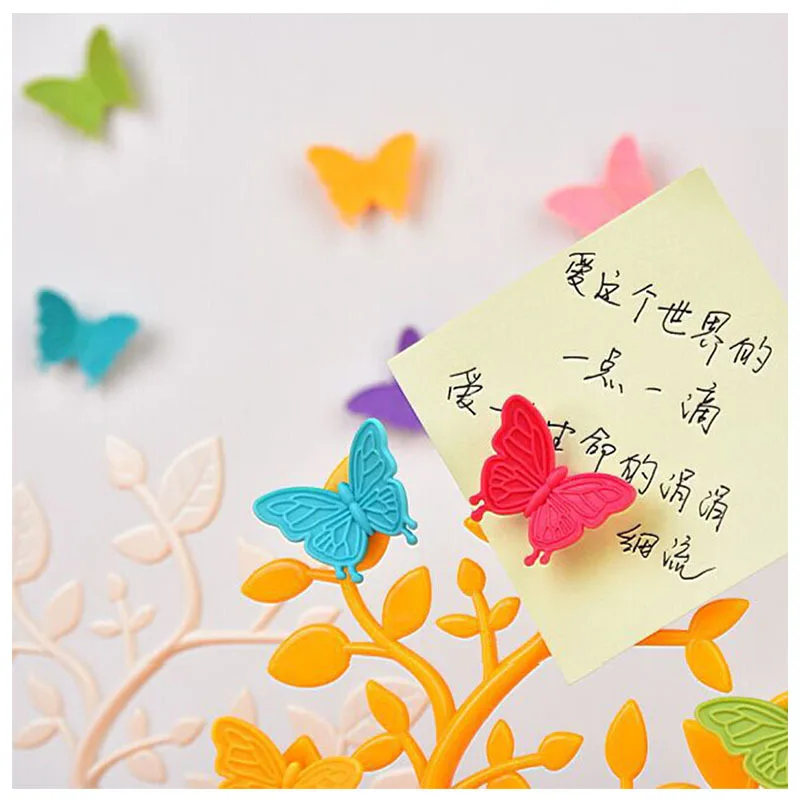 爱这个世界的
一点一滴
爱一生命的涓涓
细流